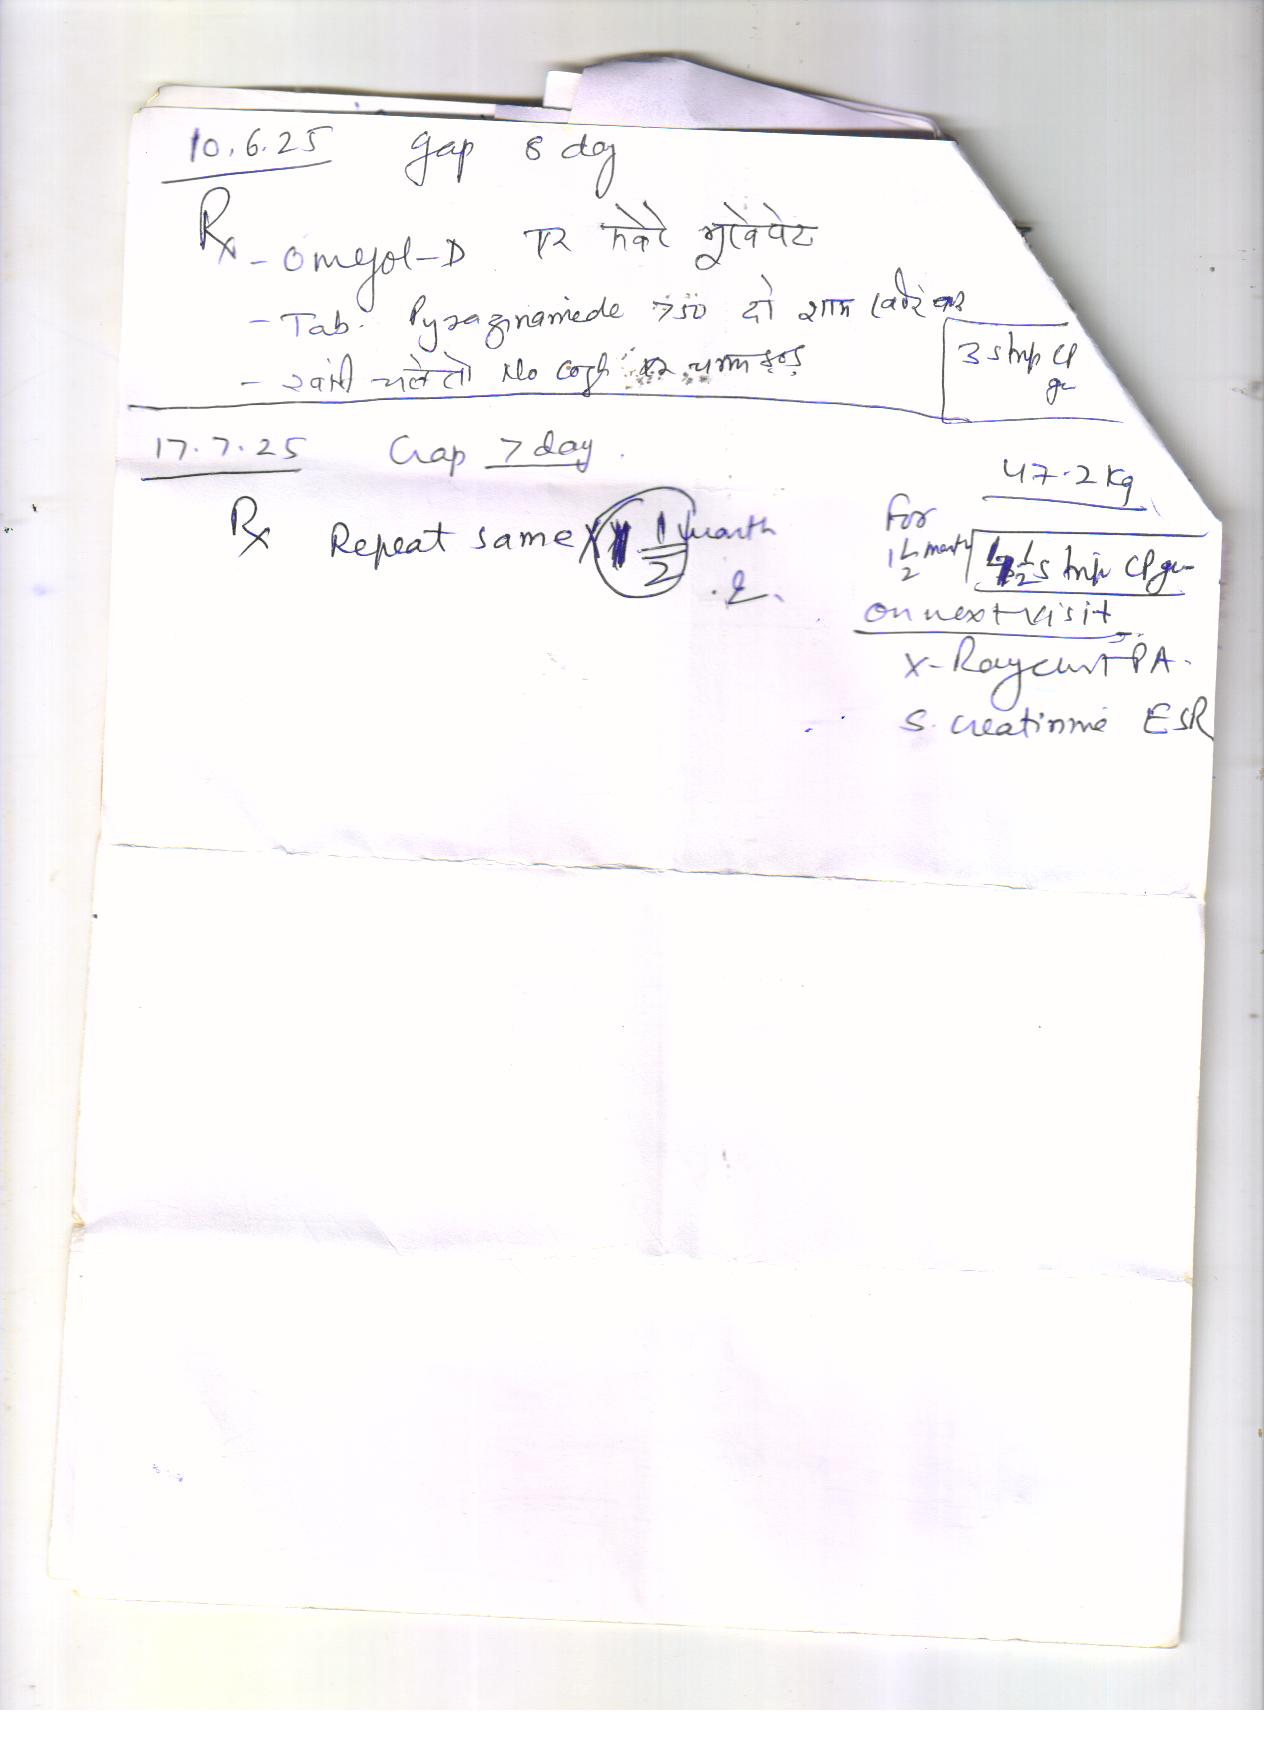 10.6.25 gap 8 day
Rx - Omejol-D एक सवेरे भूखे पेट
- Tab. Pyrazinamide 750 दो शाम
- खांसी चले तो No Cogh
3 strip CP
17.7.25 Gap 7 day.
47.2 Kg
Rx Repeat same X 1 1/2 Month
For
1 1/2 month 4 1/2 strip CP
on next visit
X-Ray chest PA.
S. creatinine ESR